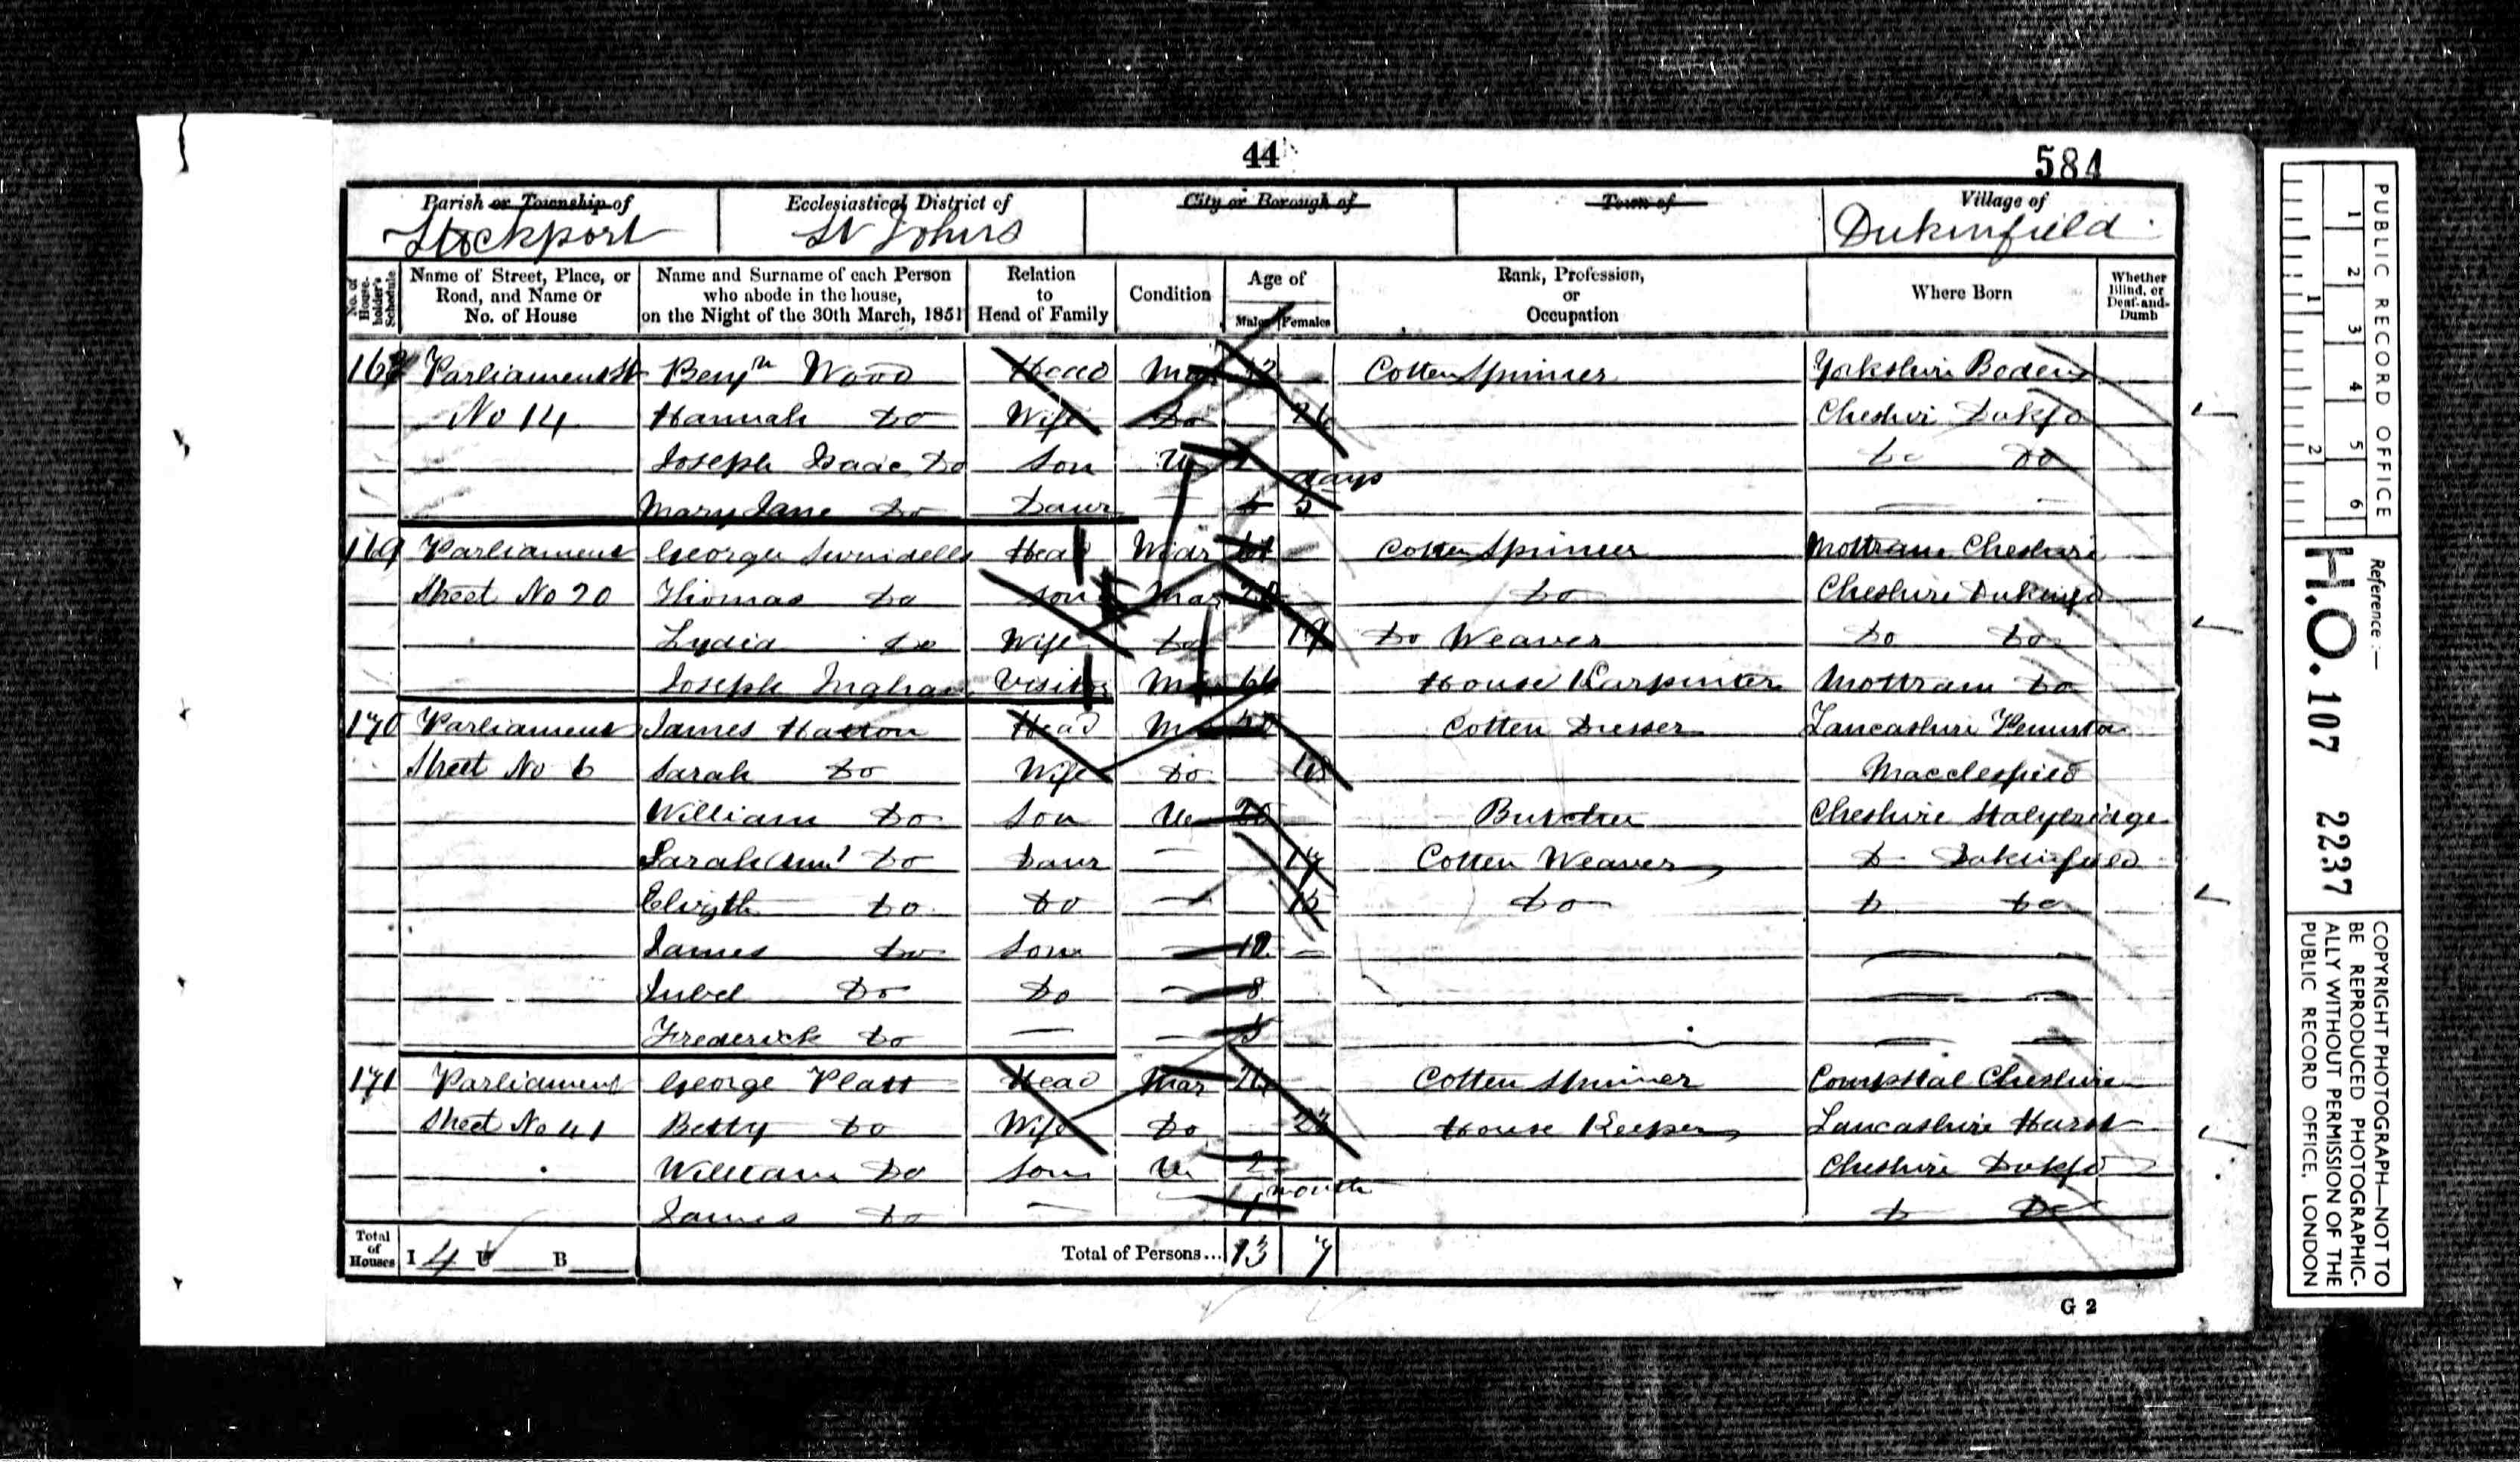 44
584
Parish or Township of
Stockport
Ecclesiastical District of
St Johns
City or Borough of
Town of
Village of
Dukinfield
No. of House-holder's Schedule
Name of Street, Place, or Road, and Name or No. of House
Name and Surname of each Person who abode in the house, on the Night of the 30th March, 1851
Relation to Head of Family
Condition
Age of
Males Females
Rank, Profession, or Occupation
Where Born
Whether Blind, or Deaf-and-Dumb
Parliament St Benjn Wood Head Mar Cotten Spinner Yorkshire
No 14 Hannah Do Wife Do Cheshir Dukfd
Joseph Isaac Do Son U Do Do
days
Mary Jane Do Daur 5
169 Parliament George Swindells Head Widr Cotten Spinner Mottram Cheshire
Street No 20 Thomas Do Son Mar Do Cheshire
Lydia Do Wife Do 19 Do Weaver Do Do
Joseph Ingham Visitor Mar House Karpinter Mottram Do
170 Parliament James Hatton Head Mar Cotten Dresser Lancashire
Street No 6 Sarah Do Wife Do Macclesfield
William Do Son Un 20 Butcher Cheshire Stalybridge
Sarah Ann Do Daur 17 Cotten Weaver D Dukinfield
Elizth Do Do Do D Do
James Do Son 10
Do Do 8
Frederick Do 5
171 Parliament George Platt Head Mar Cotten Spinner Compstal Cheshire
Street No 41 Betty Do Wife Do House Keeper Lancashire Hurst
William Do Son Un 2 Cheshire Dukfd
month
James Do 1 D Do
Total of Houses I 4 U B Total of Persons... 13 7
G 2
PUBLIC RECORD OFFICE
1 2 3 4 5 6
1 2
Reference :—
H.O. 107 2237
COPYRIGHT PHOTOGRAPH—NOT TO
BE REPRODUCED PHOTOGRAPHIC-
ALLY WITHOUT PERMISSION OF THE
PUBLIC RECORD OFFICE, LONDON